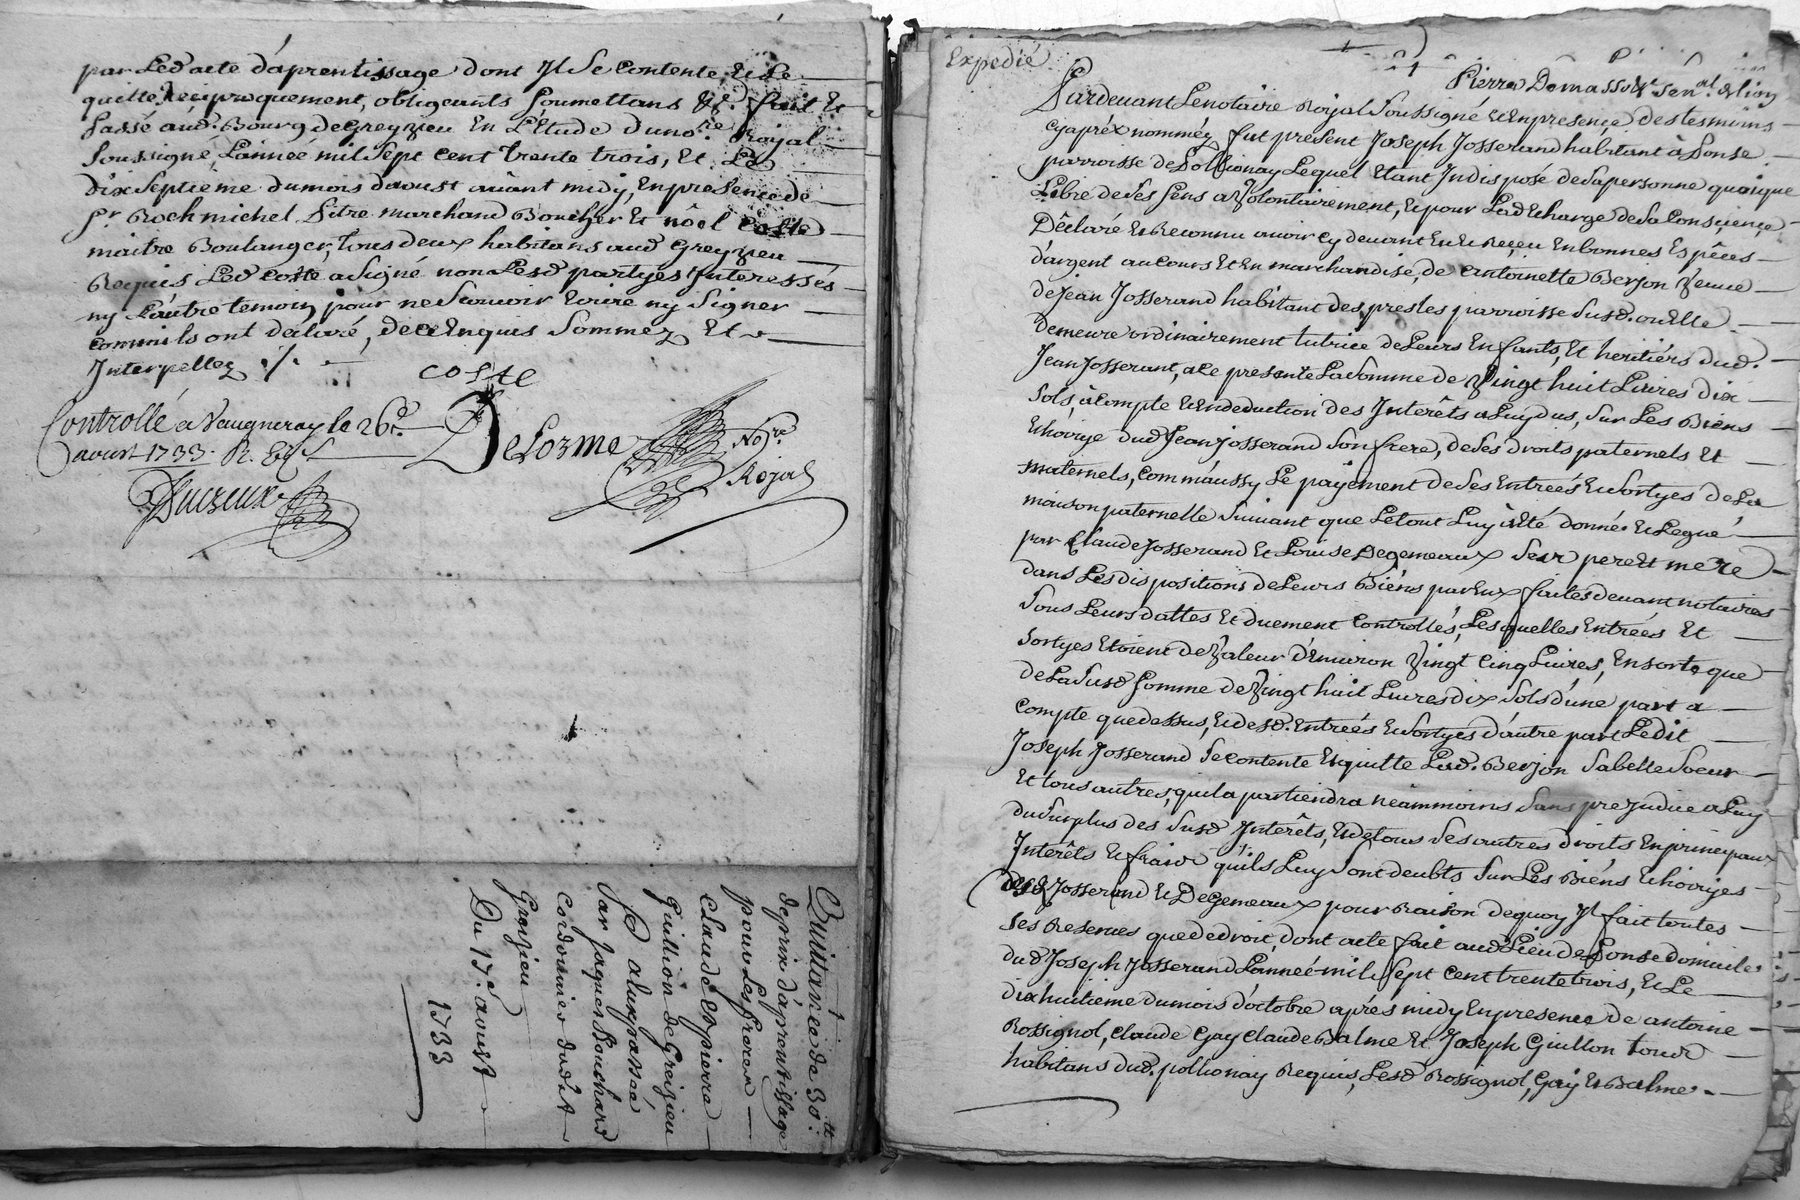 par Led acte d'aprentissage dont Il Se Contente, et Le
quitte, Reciproquement, obligeants Soumettans &c. fait Et
Passé aud. Bourg de Greyzieu En L'Etude du no.re Roijal
Soussigné, L'année mil Sept Cent trente trois, Et Le
dix Septième du mois d'aoust avant midy, En presence de
Sr. Roch michel Litre marchand Boucher Et nôel Coste
maitre Boulanger, tous deux habitans aud Greyzieu
Requis Led Coste a Signé non Lesd partyes Interessés
ny L'autre temoin pour ne Scavoir Ecrire ny Signer
comm'ils ont declaré, de ce Enquis Sommez Et
Interpellez ./.
Coste
Controllé a Vaugneray le 26e.
aoust 1733. R.
Delorme No.re
Roijal
Ducreux
Quittance de 30.tt
de prix d'aprentissage
pour Les freres
Claude Et pierre
Guillion de Greizieu
A eux passée
Par Jaques Bouchard
Cordonnier dud.t
Greizieu
Du 17e. aoust
1733
Expedié
Pierre Demasso Sen.al de Lion
Pardevant Le notaire Roijal Soussigné et En presence des tesmoins
cy apréx nomméz fut présent Joseph Josserand habitant à Ponse
parroisse de Pollionay Lequel Etant Indisposé de Sa personne quoique
Libre de Ses Sens a Volontairement, et pour La decharge de Sa Conscience
Déclaré et Reconnu avoir Cy devant Eu et Reçeu En bonnes Espêces
d'argent au cours Et En marchandise, de Antoinette Berjon Veuve
de Jean Josserand habitant des presles parroisse Susd. ou Elle
demeure ordinairement tutrice de Leurs Enfants, Et heritiérs dud.
Jean Josserant, a Ce presente La Somme de Vingt huit Livres dix
Sols, à Compte et En deduction des Interêts a Luy dus, Sur Les Biens
et hoirye dud Jean Josserand Son frere, de Ses droits paternels Et
maternels, Comm'aussy Le païement de Ses Entreés et Sortyes de La
maison paternelle Suivant que Le tout Luy à Eté donné et Legué
par Claude Josserand Et Louise Degemeaux Leur pere Et mere
dans Les dispositions de Leurs Biéns par Eux faites devant notaires
Sous Leurs dattes Et duement Controllés, Les quelles Entrées Et
Sortyes Etoient de Valeur d'Environ Vingt Cinq Livres, En sorte que
de La Susd Somme de Vingt huit Livres dix Sols d'une part a
Compte que dessus, et desd. Entreés et Sortyes d'autre part Ledit
Joseph Josserand Se contente Et quitte Lad. Berjon Sa belle Soeur
Et tous autres, qu'il a partiendra neammoins Sans prejudice a Luy
du Surplus des Susd Interêts, et de tous Ses autres droits En principaux
Interêts et fraix qu'ils Luy Sont deubts Sur Les Biéns et hoiryes
desd Josserand et Degemeaux pour Raison de quoy Il fait toutes
Ses Reserves que de droit, dont acte fait aud Lieu de Ponse domicile
dud Joseph Josserand L'anneé mil Sept Cent trente trois, et Le
dix huitieme du mois d'octobre aprés midy En presence de antoine
Rossignol, Claude Gay Claude Balme Et Joseph Guillon tous
habitans dud. pollionay Requis, Lesd Rossignol, Gay et Balme